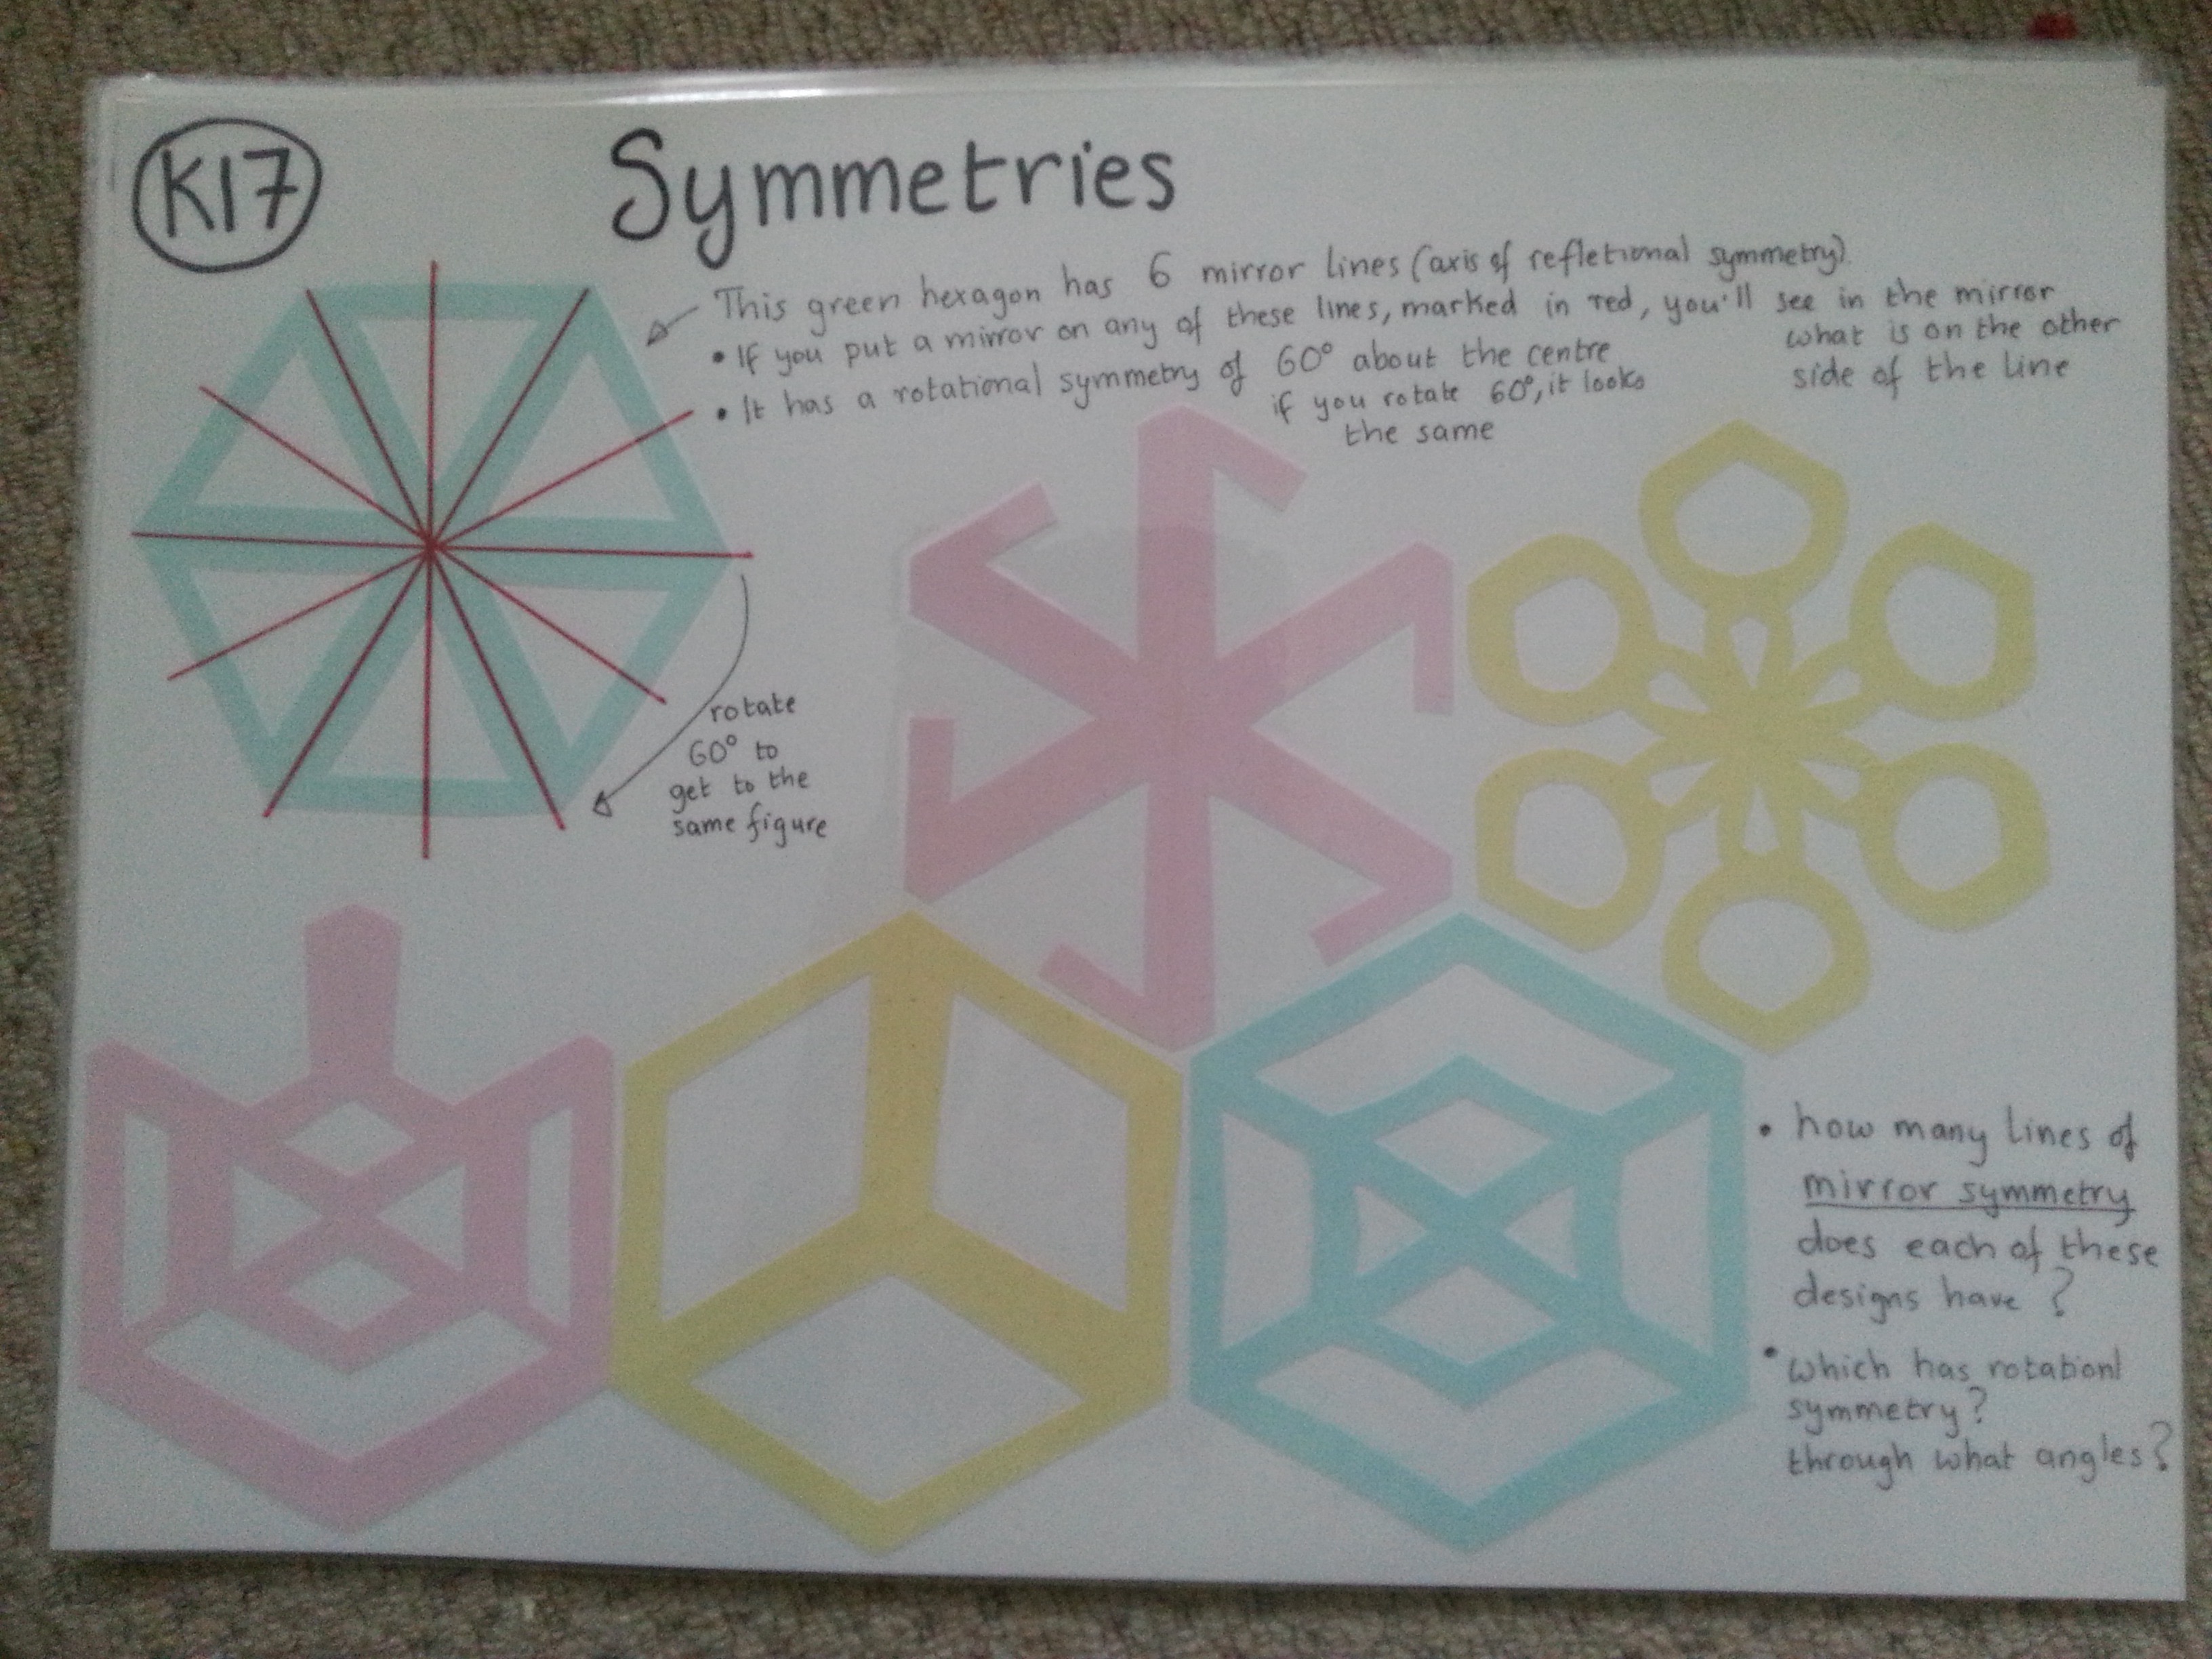 K17
Symmetries
This green hexagon has 6 mirror lines (axis of refletional symmetry).
• If you put a mirror on any of these lines, marked in red, you'll see in the mirror
what is on the other
side of the line
• It has a rotational symmetry of 60° about the centre
if you rotate 60°, it looks
the same
rotate
60° to
get to the
same figure
• how many lines of
mirror symmetry
does each of these
designs have?
• which has rotationl
symmetry?
through what angles?